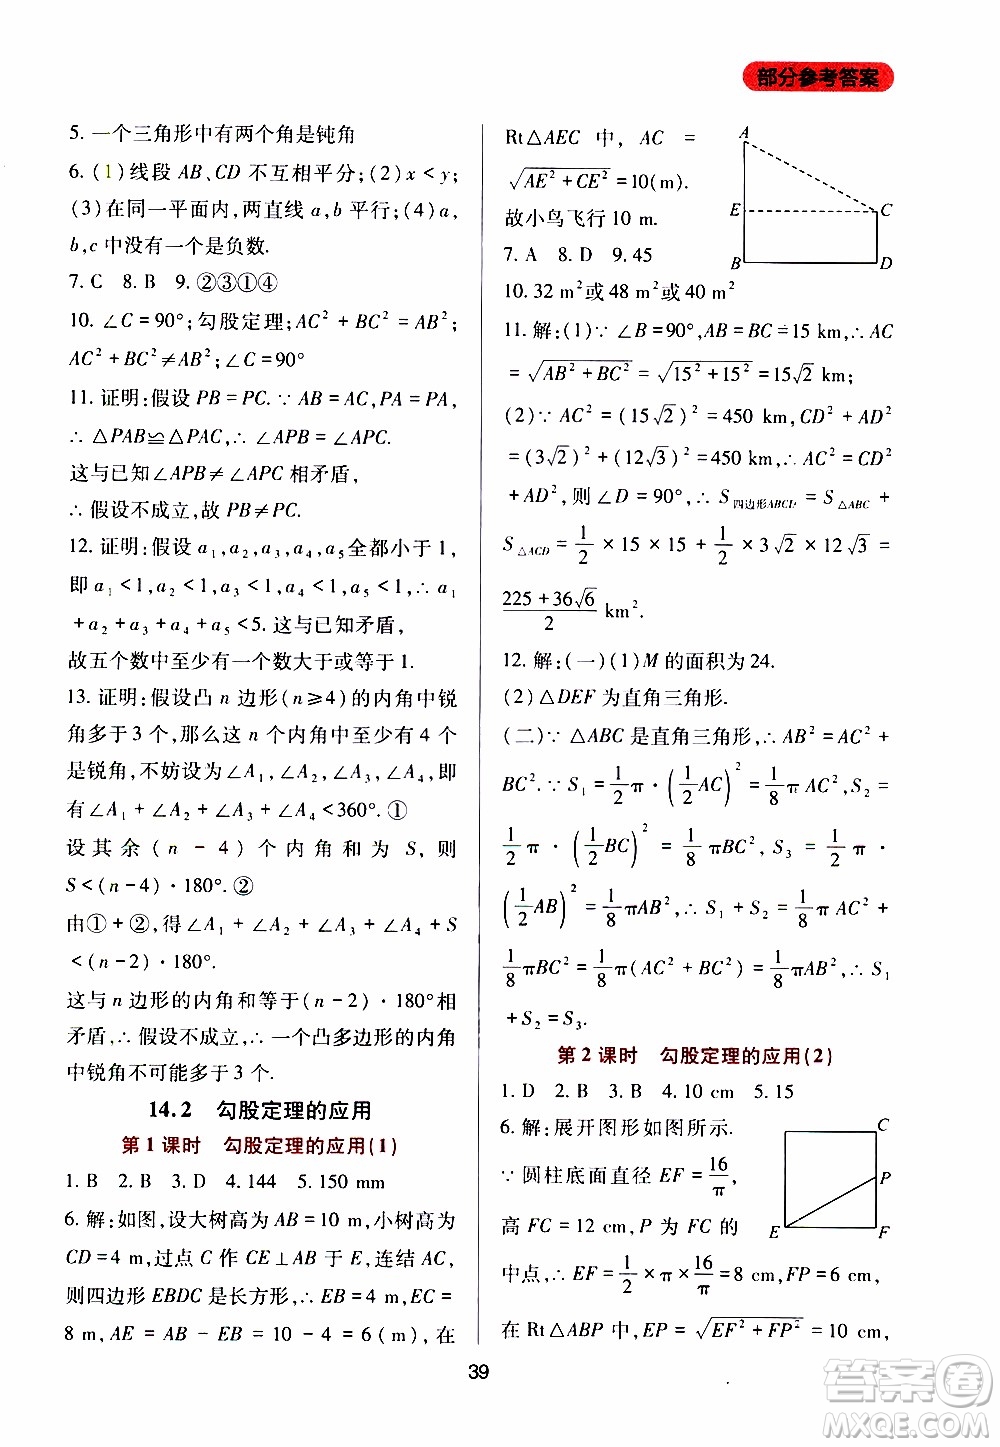 部分参考答案
5. 一个三角形中有两个角是钝角
6. (1)线段 AB、CD 不互相平分;(2)x < y;
(3)在同一平面内,两直线 a,b 平行;(4)a,
b,c 中没有一个是负数.
7. C 8. B 9. ②③①④
10. ∠C = 90°;勾股定理;AC² + BC² = AB²;
AC² + BC² ≠ AB²;∠C = 90°
11. 证明:假设 PB = PC. ∵ AB = AC, PA = PA,
∴ △PAB≌△PAC,∴ ∠APB = ∠APC.
这与已知∠APB ≠ ∠APC 相矛盾,
∴ 假设不成立,故 PB ≠ PC.
12. 证明:假设 a₁,a₂,a₃,a₄,a₅全都小于 1,
即 a₁ < 1,a₂ < 1,a₃ < 1,a₄ < 1,a₅ < 1,∴ a₁
+ a₂ + a₃ + a₄ + a₅ < 5. 这与已知矛盾,
故五个数中至少有一个数大于或等于 1.
13. 证明:假设凸 n 边形(n≥4)的内角中锐
角多于 3 个,那么这 n 个内角中至少有 4 个
是锐角,不妨设为∠A₁,∠A₂,∠A₃,∠A₄,即
有∠A₁ + ∠A₂ + ∠A₃ + ∠A₄ < 360°. ①
设其余(n - 4)个内角和为 S,则
S < (n - 4)·180°. ②
由① + ②,得∠A₁ + ∠A₂ + ∠A₃ + ∠A₄ + S
< (n - 2)·180°.
这与 n 边形的内角和等于(n - 2)·180°相
矛盾,∴ 假设不成立,∴ 一个凸多边形的内角
中锐角不可能多于 3 个.
14.2 勾股定理的应用
第 1 课时 勾股定理的应用(1)
1. B 2. B 3. D 4. 144 5. 150 mm
6. 解:如图,设大树高为 AB = 10 m,小树高为
CD = 4 m,过点 C 作 CE⊥AB 于 E,连结 AC,
则四边形 EBDC 是长方形,∴ EB = 4 m,EC =
8 m,AE = AB - EB = 10 - 4 = 6(m),在
Rt△AEC 中,AC =
√(AE² + CE²) = 10(m).
故小鸟飞行 10 m.
A
E
C
B
D
7. A 8. D 9. 45
10. 32 m²或 48 m²或 40 m²
11. 解:(1)∵ ∠B = 90°,AB = BC = 15 km,∴ AC
= √(AB² + BC²) = √(15² + 15²) = 15√2 km;
(2)∵ AC² = (15√2)² = 450 km,CD² + AD²
= (3√2)² + (12√3)² = 450 km,∴ AC² = CD²
+ AD²,则∠D = 90°,∴ S四边形ABCD = S△ABC +
S△ACD = 1/2 × 15 × 15 + 1/2 × 3√2 × 12√3 =
(225 + 36√6)/2 km².
12. 解:(一)(1)M 的面积为 24.
(2)△DEF 为直角三角形.
(二)∵ △ABC 是直角三角形,∴ AB² = AC² +
BC². ∵ S₁ = 1/2 π·(1/2 AC)² = 1/8 πAC²,S₂ =
1/2 π·(1/2 BC)² = 1/8 πBC²,S₃ = 1/2 π·
(1/2 AB)² = 1/8 πAB²,∴ S₁ + S₂ = 1/8 πAC² +
1/8 πBC² = 1/8 π(AC² + BC²) = 1/8 πAB²,∴ S₁
+ S₂ = S₃.
第 2 课时 勾股定理的应用(2)
1. D 2. B 3. B 4. 10 cm 5. 15
6. 解:展开图形如图所示.
∵ 圆柱底面直径 EF = 16/π,
高 FC = 12 cm,P 为 FC 的
中点,∴ EF = 1/2 × π × 16/π = 8 cm,FP = 6 cm,
在 Rt△ABP 中,EP = √(EF² + FP²) = 10 cm,
C
P
E
F
39
答案圈
MXQE.COM